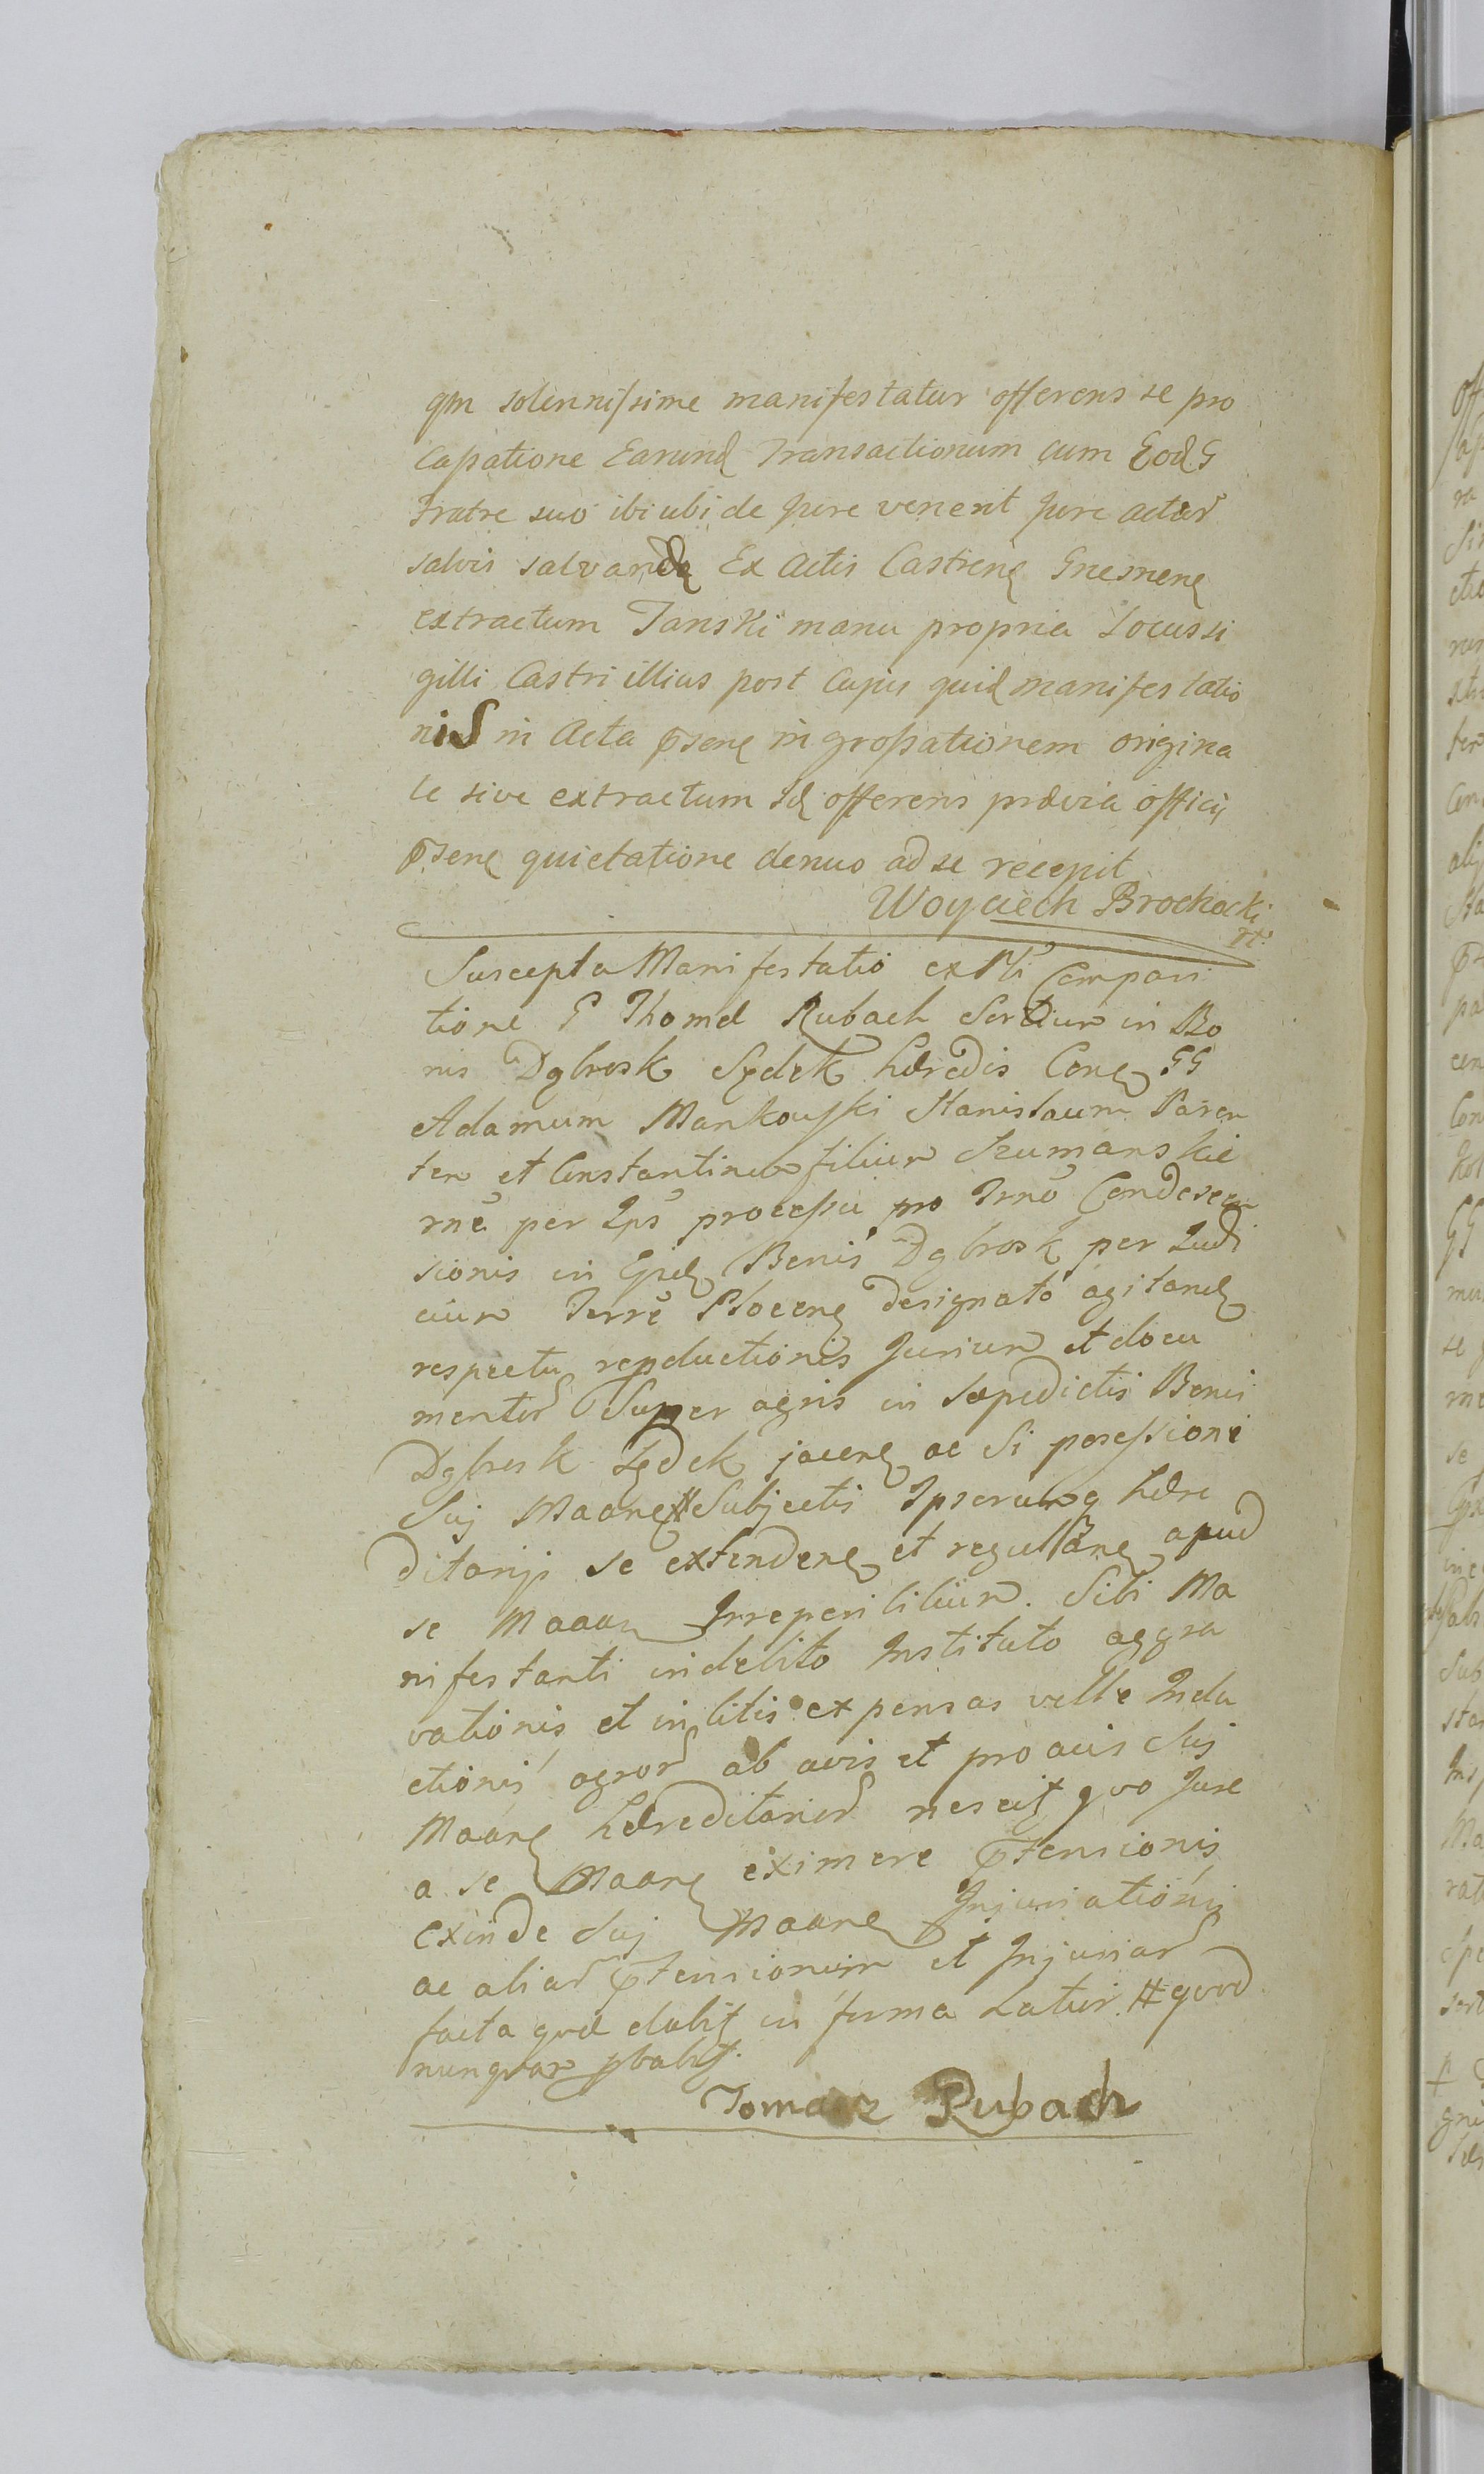 qm solennissime manifestatur offerens se pro
Cassatione Earund Transactionum cum Eod G
Fratre suo ibi ubi de Jure venerit Jure actur
salvis salvand Ex Actis Castren Gnesnen
extractum Janski manu propria Locus si
gilli Castri illius post Cujus quid manifestatio
nis in Acta psen ingrossationem origina
le sive extractum Id offerens prævia officij
psen quietatione denuo ad se recepit
Woyciech Brochocki
Suscepta Manifestatio ex Pli Compari
tione G Thomæ Rubach Sortium in Bo
nis Dgbrosk Sędek hæredis Con GG
Adamum Mankowski Stanislaum Paren
tem et Constantinum filium Szumanskie
rne per Ips processu pro Trno Condescen
sionis in Eisd Bonis Dgbrosk per Judi
cium Terre Plocen designato agitand
respectu repductionis Jurium et docu
mentor Super agris in sæpedictis Bonis
Dgbrosk Sędek jacen ac Si possessioni
Suj Maane # Subjectis Ipsorumq hære
ditarijs se extenden et regulan apud
se Maan Irreperibilium. Sibi Ma
nifestanti indebito Instituto aggra
vationis et in litis expensas velle Indu
ctionis agror ab avis et proavis Suj
Maane hæreditarior nescit quo Jure
a se Maane eximere ptensionis
exinde Suj Maane Injuriationis
ac aliar ptensionum et Injuriar
facta quæ dabit in forma Latiori # quod
nunquam pbabit.
Tomasz Rubach